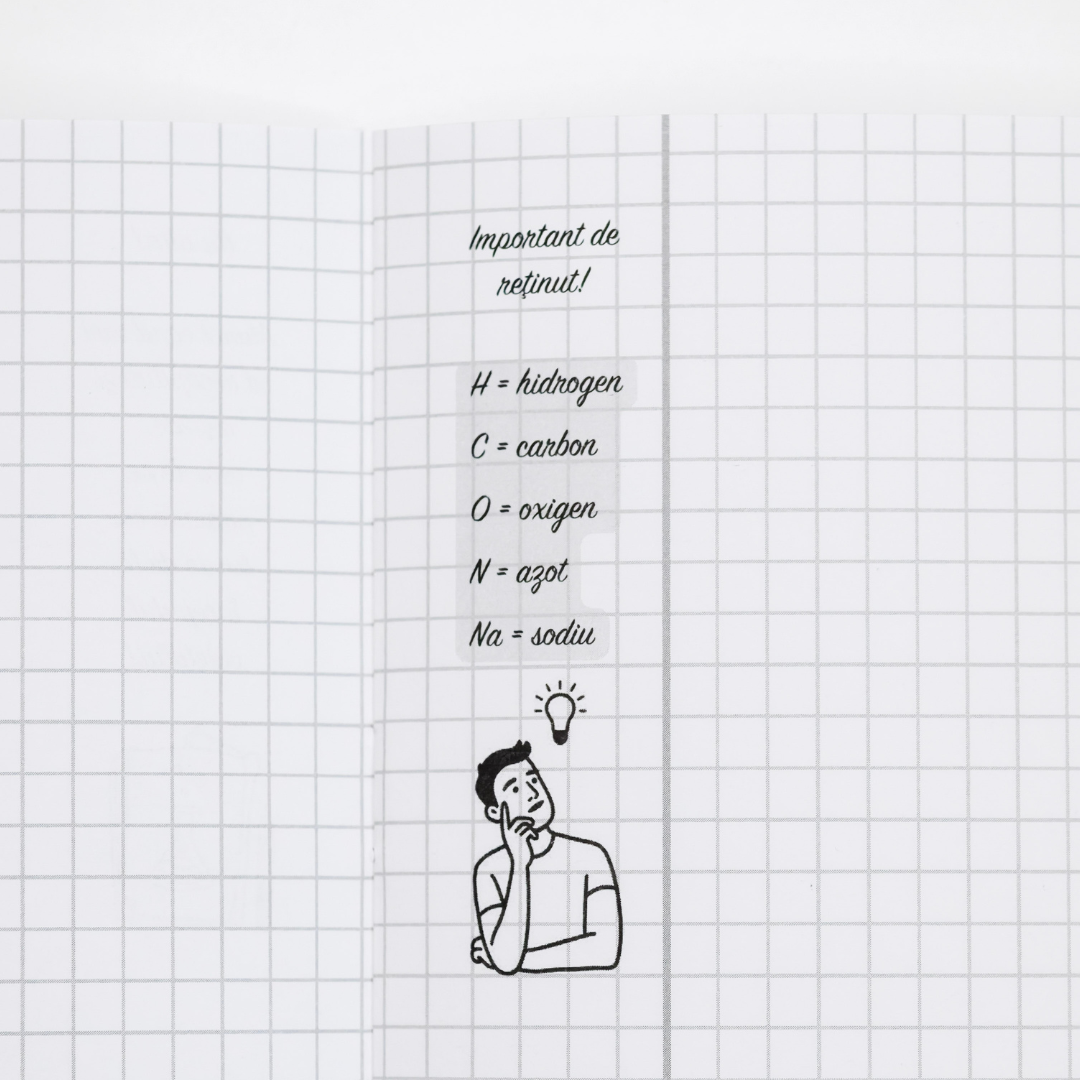 Important de
reţinut!
H = hidrogen
C = carbon
O = oxigen
N = azot
Na = sodiu